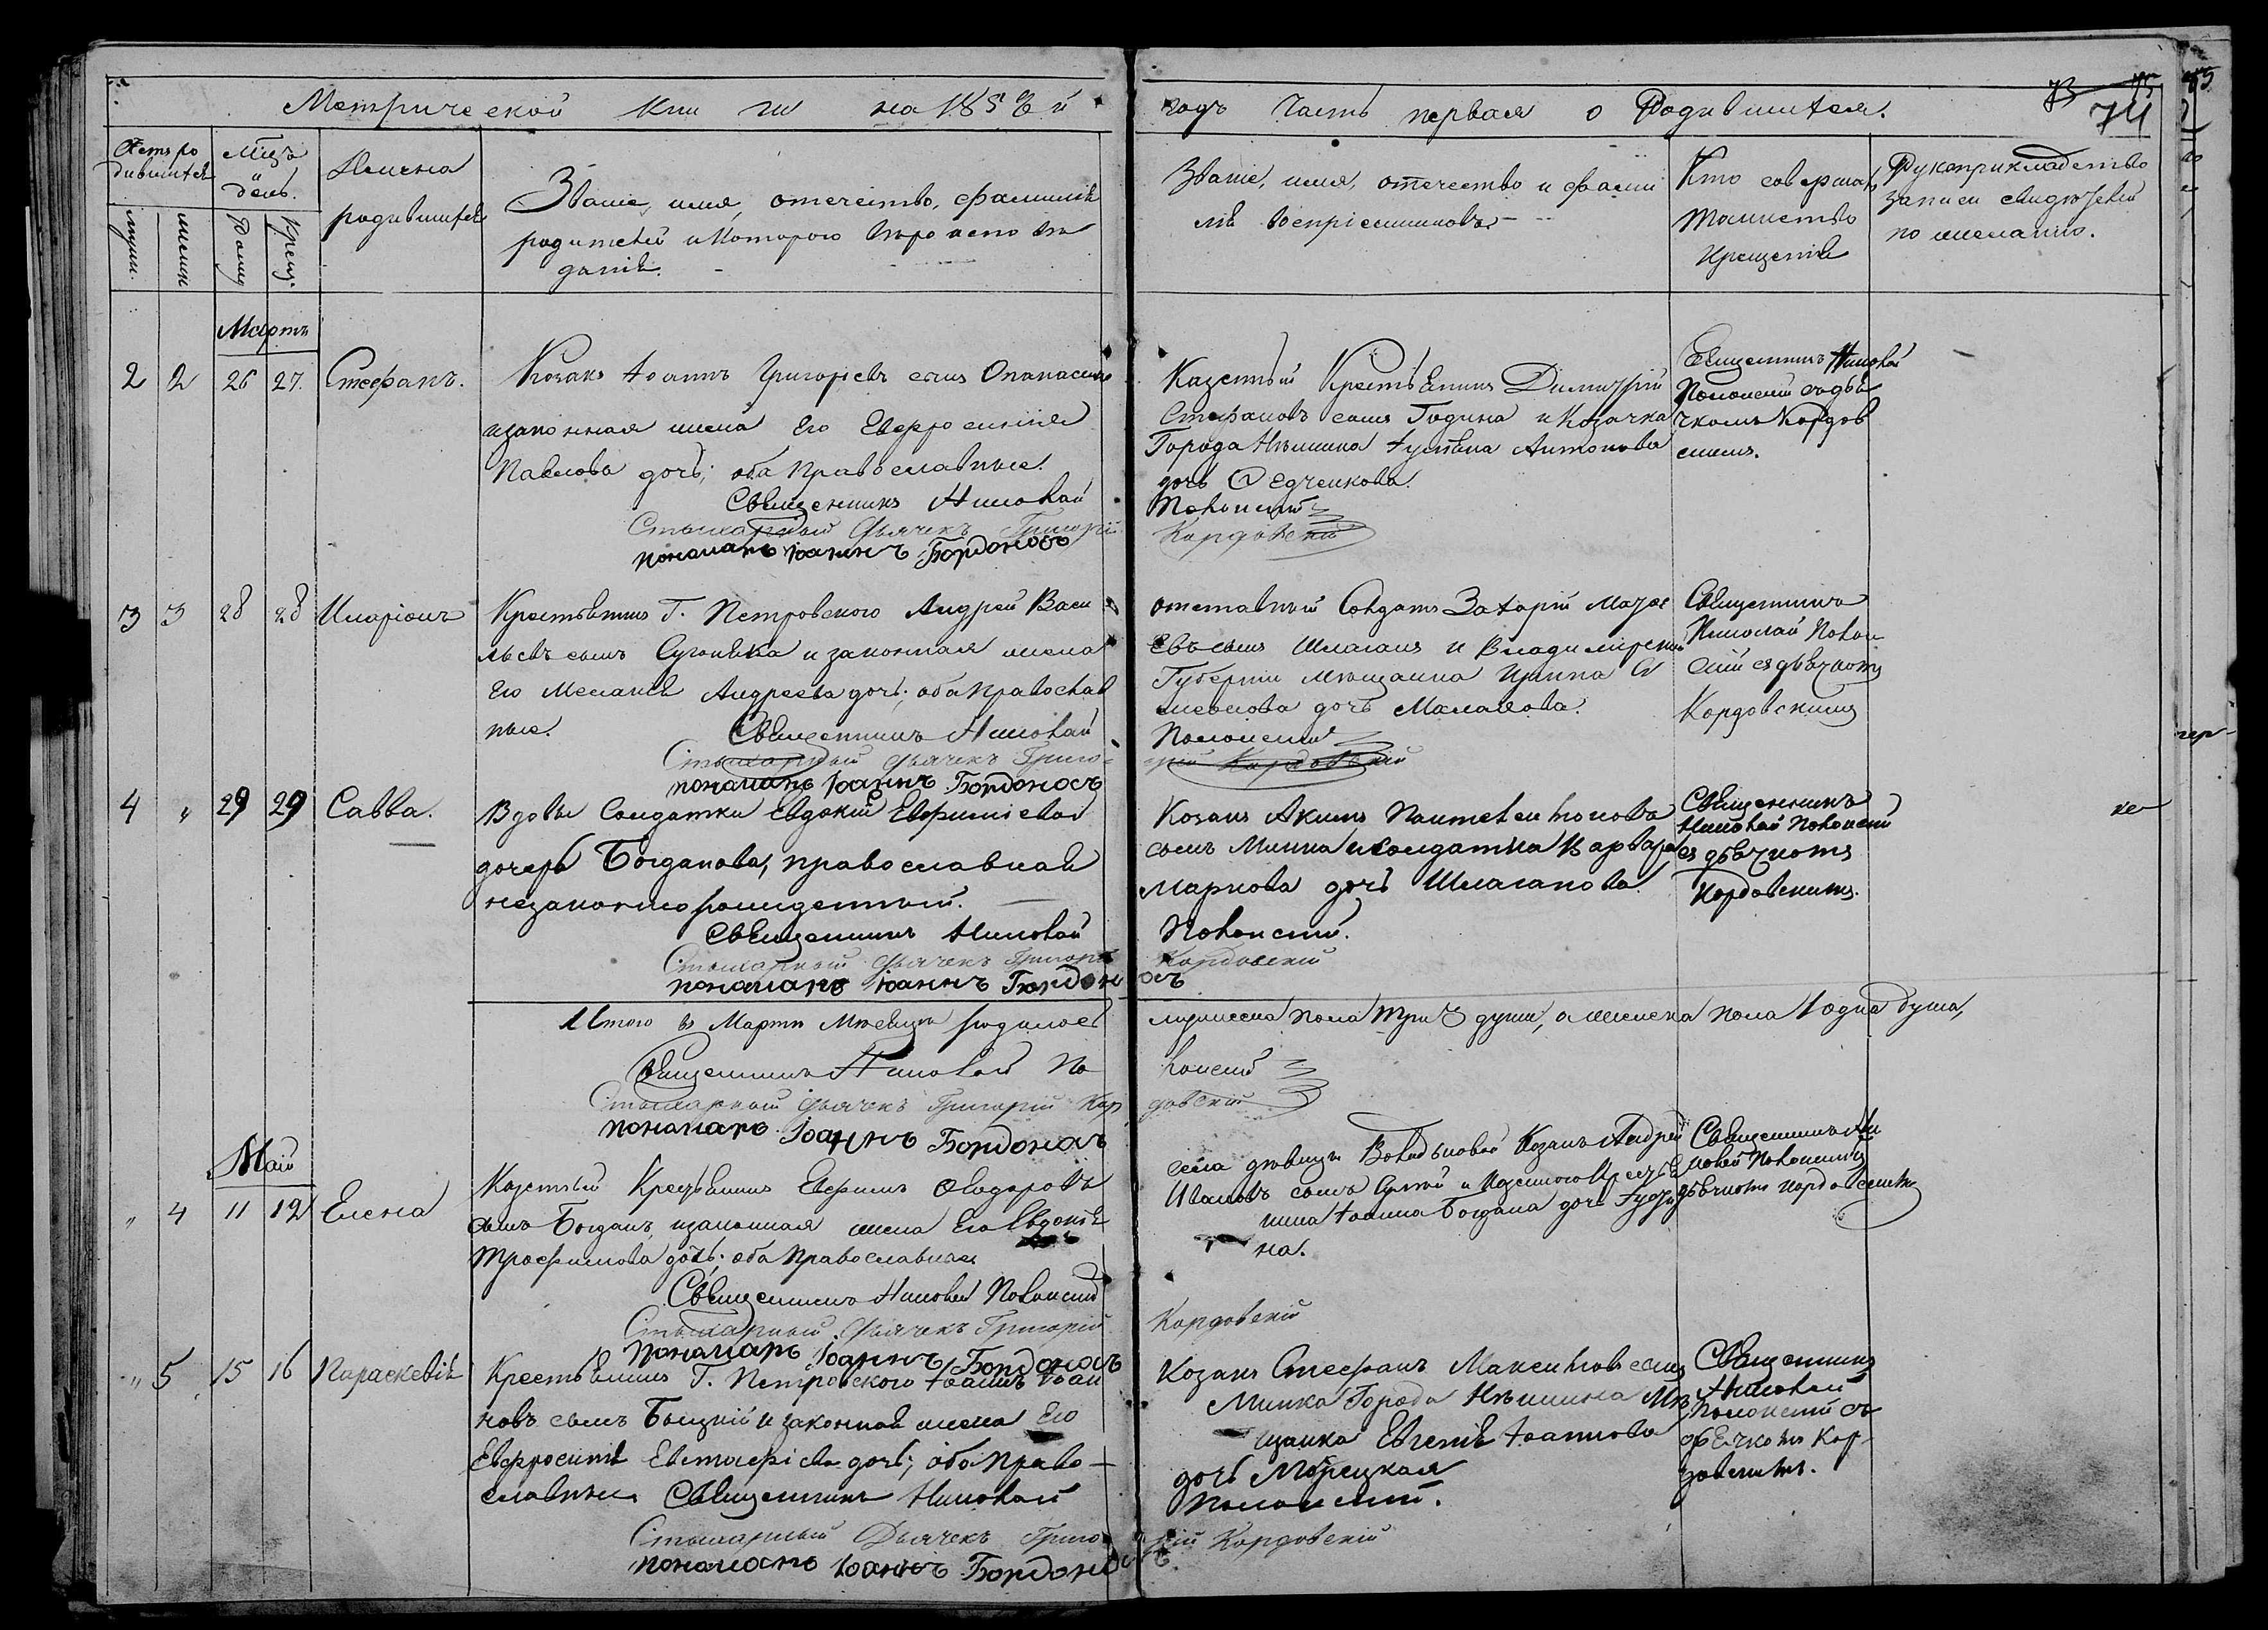 Метрической кни ги на 185 й
годъ Часть первая о Родившихся.
74
Мѣцъ
и
день.
Имена
родившихся
Званіе, имя, отечество, фамилія
родителей и Которого вѣро исповѣ
данія.
Званіе, имя, отечество и фами
лія воспріемниковъ
Кто совершалъ
таинство
Крещенія
Рукоприкладство
записи свидѣтелей
по желанію.
Мартъ
2 2 26 27. Стефанъ.
Козакъ Іоаннъ Григорьевъ сынъ
изаконная жена его Евфросинія
Павлова дочь; оба православные.
Священникъ Николай
Стыхарный Дьячекъ Григорій
пономарь Іоаннъ Бордоносъ
Казенный Крестьянинъ Димитрій
Стефановъ сынъ Година и Козачка
Города Нѣжина Антонова
дочь Федченкова.
Полонскій
Кордовскій
Священникъ Николай
Полонскій съ дья
чкомъ Кордов
скимъ.
3 3 28 28 Иларіонъ
Крестьянинъ Г. Петровского Андрей Васи
льевъ сынъ и законная жена
Его Меланія Андреева дочь; оба православ
ные. Священникъ Николай
Стыхарный Дьячекъ Григо
пономарь Іоаннъ Бордоносъ
отставный Солдатъ Захарій
евъ сынъ Шлаганъ и Владимірской
Губерніи мѣщанка
дочь Малахова.
Полонскій
рій Кордовскій
Священникъ
Николай Полон
скій съ дьячкомъ
Кордовскимъ
4 " 29 29 Савва.
Вдовы Солдатки Евдокіи Евфиміевой
дочерь Богданова, православная
незаконно рожденный.
Священникъ Николай
Стыхарный Дьячекъ Григорій
пономарь Іоаннъ Бордон осъ
Козакъ Акимъ Пантелеймонова
сынъ Минка и Солдатка Варвара
Маркова дочь Шлаганова.
Полонскій.
Кордовскій
Священникъ
Николай Полонскій
съ дьячкомъ
Кордовскимъ.
Итого въ Мартѣ Мѣсяцѣ родилось
мужеска пола три 3 души, а женска пола 1 одна душа,
Священникъ Николай По
лонскій
Стыхарный Дьячекъ Григорій Кор
довскій
пономарь Іоаннъ Бордоносъ
Май
" 4 11 12 Елена
Казенный Крестьянинъ Евфимъ Федоровъ
сынъ Богданъ, изаконная жена Его Евдокія
Трофимова дочь; оба Православные
Священникъ Николай Полонскій
Стыхарный Дьячекъ Григорій
пономарь Іоаннъ Бордоносъ
села дѣвицы Козакъ Андрей
Ивановъ сынъ и Казенного Крестья
нина Іоанна Богдана дочь
на.
Кордовскій
Священникъ Ни
колай Полонскій съ
дьячкомъ Кордовскимъ
" 5 15 16 Параскевія
Крестьянинъ Г. Петровского Іоаннъ Іоан
новъ сынъ и законная жена Его
Евфросинія Евстафіева дочь; оба право
славные. Священникъ Николай
Стыхарный Дьячекъ Григо
рій Кордовскій
пономарь Іоаннъ Бордоносъ
Козакъ Стефанъ Максимовъ сынъ
Минка Города Нѣжина Мѣ
щанка Евгенія Іоаннова
дочь
Полонскій.
Священникъ
Николай
Полонскій съ
дьячкомъ Кор
довскимъ.